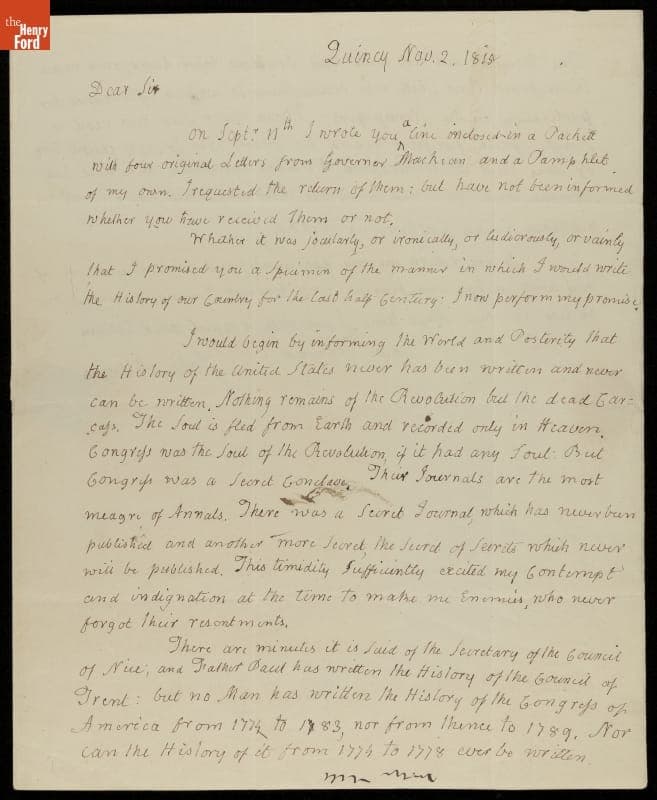 the
Henry
Ford
Quincy Nov. 2. 1818
Dear Sir
On Septr. 11th I wrote you a line inclosed in a Packett
with four original Letters from Governor Mackean and a Pamphlet
of my own. I requested the return of them: but have not been informed
whether you have received them or not.
Whether it was jocularly, or ironically, or ludicrously, or vainly
that I promised you a Specimen of the manner in which I would write
the History of our Country for the last half Century: I now perform my promise.
I would begin by informing the World and Posterity that
the History of the United States never has been written and never
can be written. Nothing remains of the Revolution but the dead Car-
cass. The Soul is fled from Earth and recorded only in Heaven.
Congress was the Soul of the Revolution, if it had any Soul. But
Congress was a Secret Conclave. Their Journals are the most
meagre of Annals. There was a Secret Journal, which has never been
published and another more Secret, the Secret of Secrets which never
will be published. This timidity sufficiently excited my Contempt
and indignation at the time to make me Enemies, who never
forgot their resentments.
There are minutes it is said of the Secretary of the Council
of Nice, and Father Paul has written the History of the Council of
Trent: but no Man has written the History of the Congress of
America from 1774 to 1783, nor from thence to 1789. Nor
can the History of it from 1774 to 1778 ever be written.